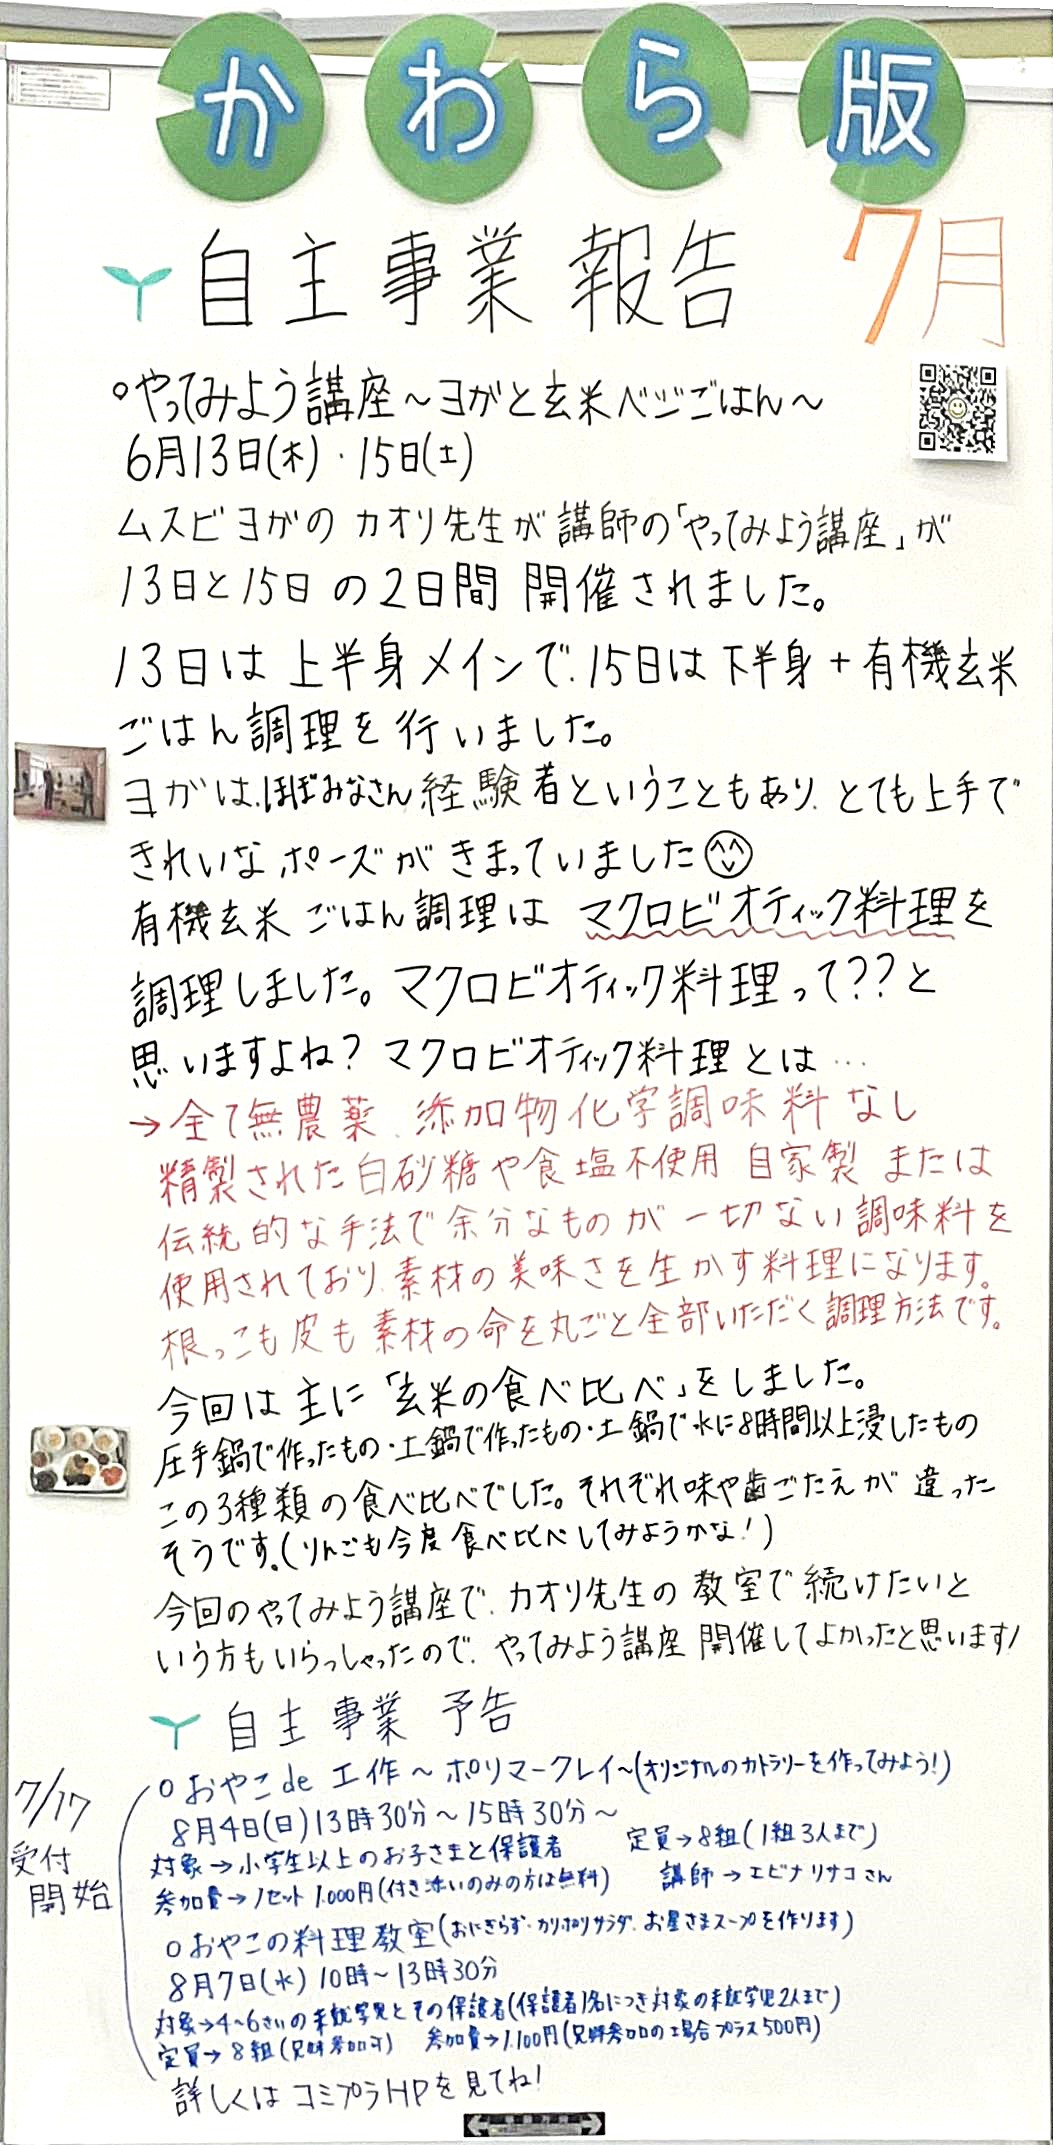 かわら版
自主事業報告 7月
○やってみよう講座～ヨガと玄米ベジごはん～
6月13日(木)・15日(土)
ムスビヨガのカオリ先生が講師の「やってみよう講座」が
13日と15日の2日間 開催されました。
13日は上半身メインで、15日は下半身+有機玄米
ごはん調理を行いました。
ヨガは、ほぼみなさん経験者ということもあり、とても上手で
きれいなポーズがきまっていました
有機玄米ごはん調理は マクロビオティック料理を
調理しました。マクロビオティック料理って??と
思いますよね?マクロビオティック料理とは…
→全て無農薬、添加物化学調味料なし
精製された白砂糖や食塩不使用 自家製 または
伝統的な手法で余分なものが一切ない調味料を
使用されており、素材の美味さを生かす料理になります。
根っこも皮も素材の命を丸ごと全部いただく調理方法です。
今回は主に「玄米の食べ比べ」をしました。
圧手鍋で作ったもの・土鍋で作ったもの・土鍋で水に8時間以上浸したもの
この3種類の食べ比べでした。それぞれ味や歯ごたえが違った
そうです。(りんごも今度食べ比べしてみようかな!)
今回のやってみよう講座で、カオリ先生の教室で続けたいと
いう方もいらっしゃったので、やってみよう講座 開催してよかったと思います!
自主事業 予告
7/17
受付
開始
○おやこde工作～ポリマークレイ～(オリジナルのカトラリーを作ってみよう!)
8月4日(日)13時30分～15時30分～
定員→8組(1組3人まで)
対象→小学生以上のお子さまと保護者
参加費→1セット1,000円(付き添いのみの方は無料)
講師→エビナリサコさん
○おやこの料理教室(おにぎらず・カリポリサラダ、お星さまスープを作ります)
8月7日(水)10時～13時30分
対象→4~6さいの未就学児とその保護者(保護者1名につき対象の未就学児2人まで)
定員→8組(兄妹参加可) 参加費→1,100円(兄妹参加の場合プラス500円)
詳しくはコミプラHPを見てね!